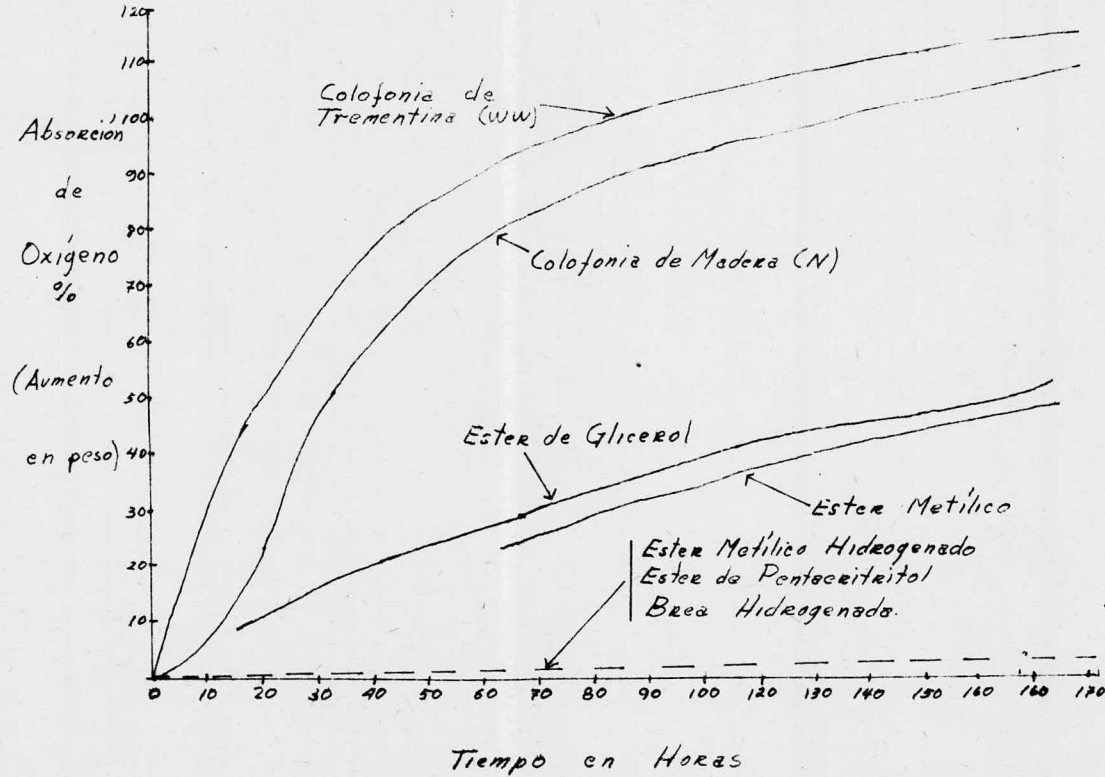 120
110
100
90
80
70
60
50
40
30
20
10
0
Absorción
de
Oxígeno
%
(Aumento
en peso)
Colofonia de
Trementina (WW)
Colofonia de Madera (N)
Ester de Glicerol
Ester Metílico
Ester Metílico Hidrogenado
Ester de Pentaeritritol
Brea Hidrogenada.
0 10 20 30 40 50 60 70 80 90 100 120 120 130 140 150 160 170
Tiempo en Horas